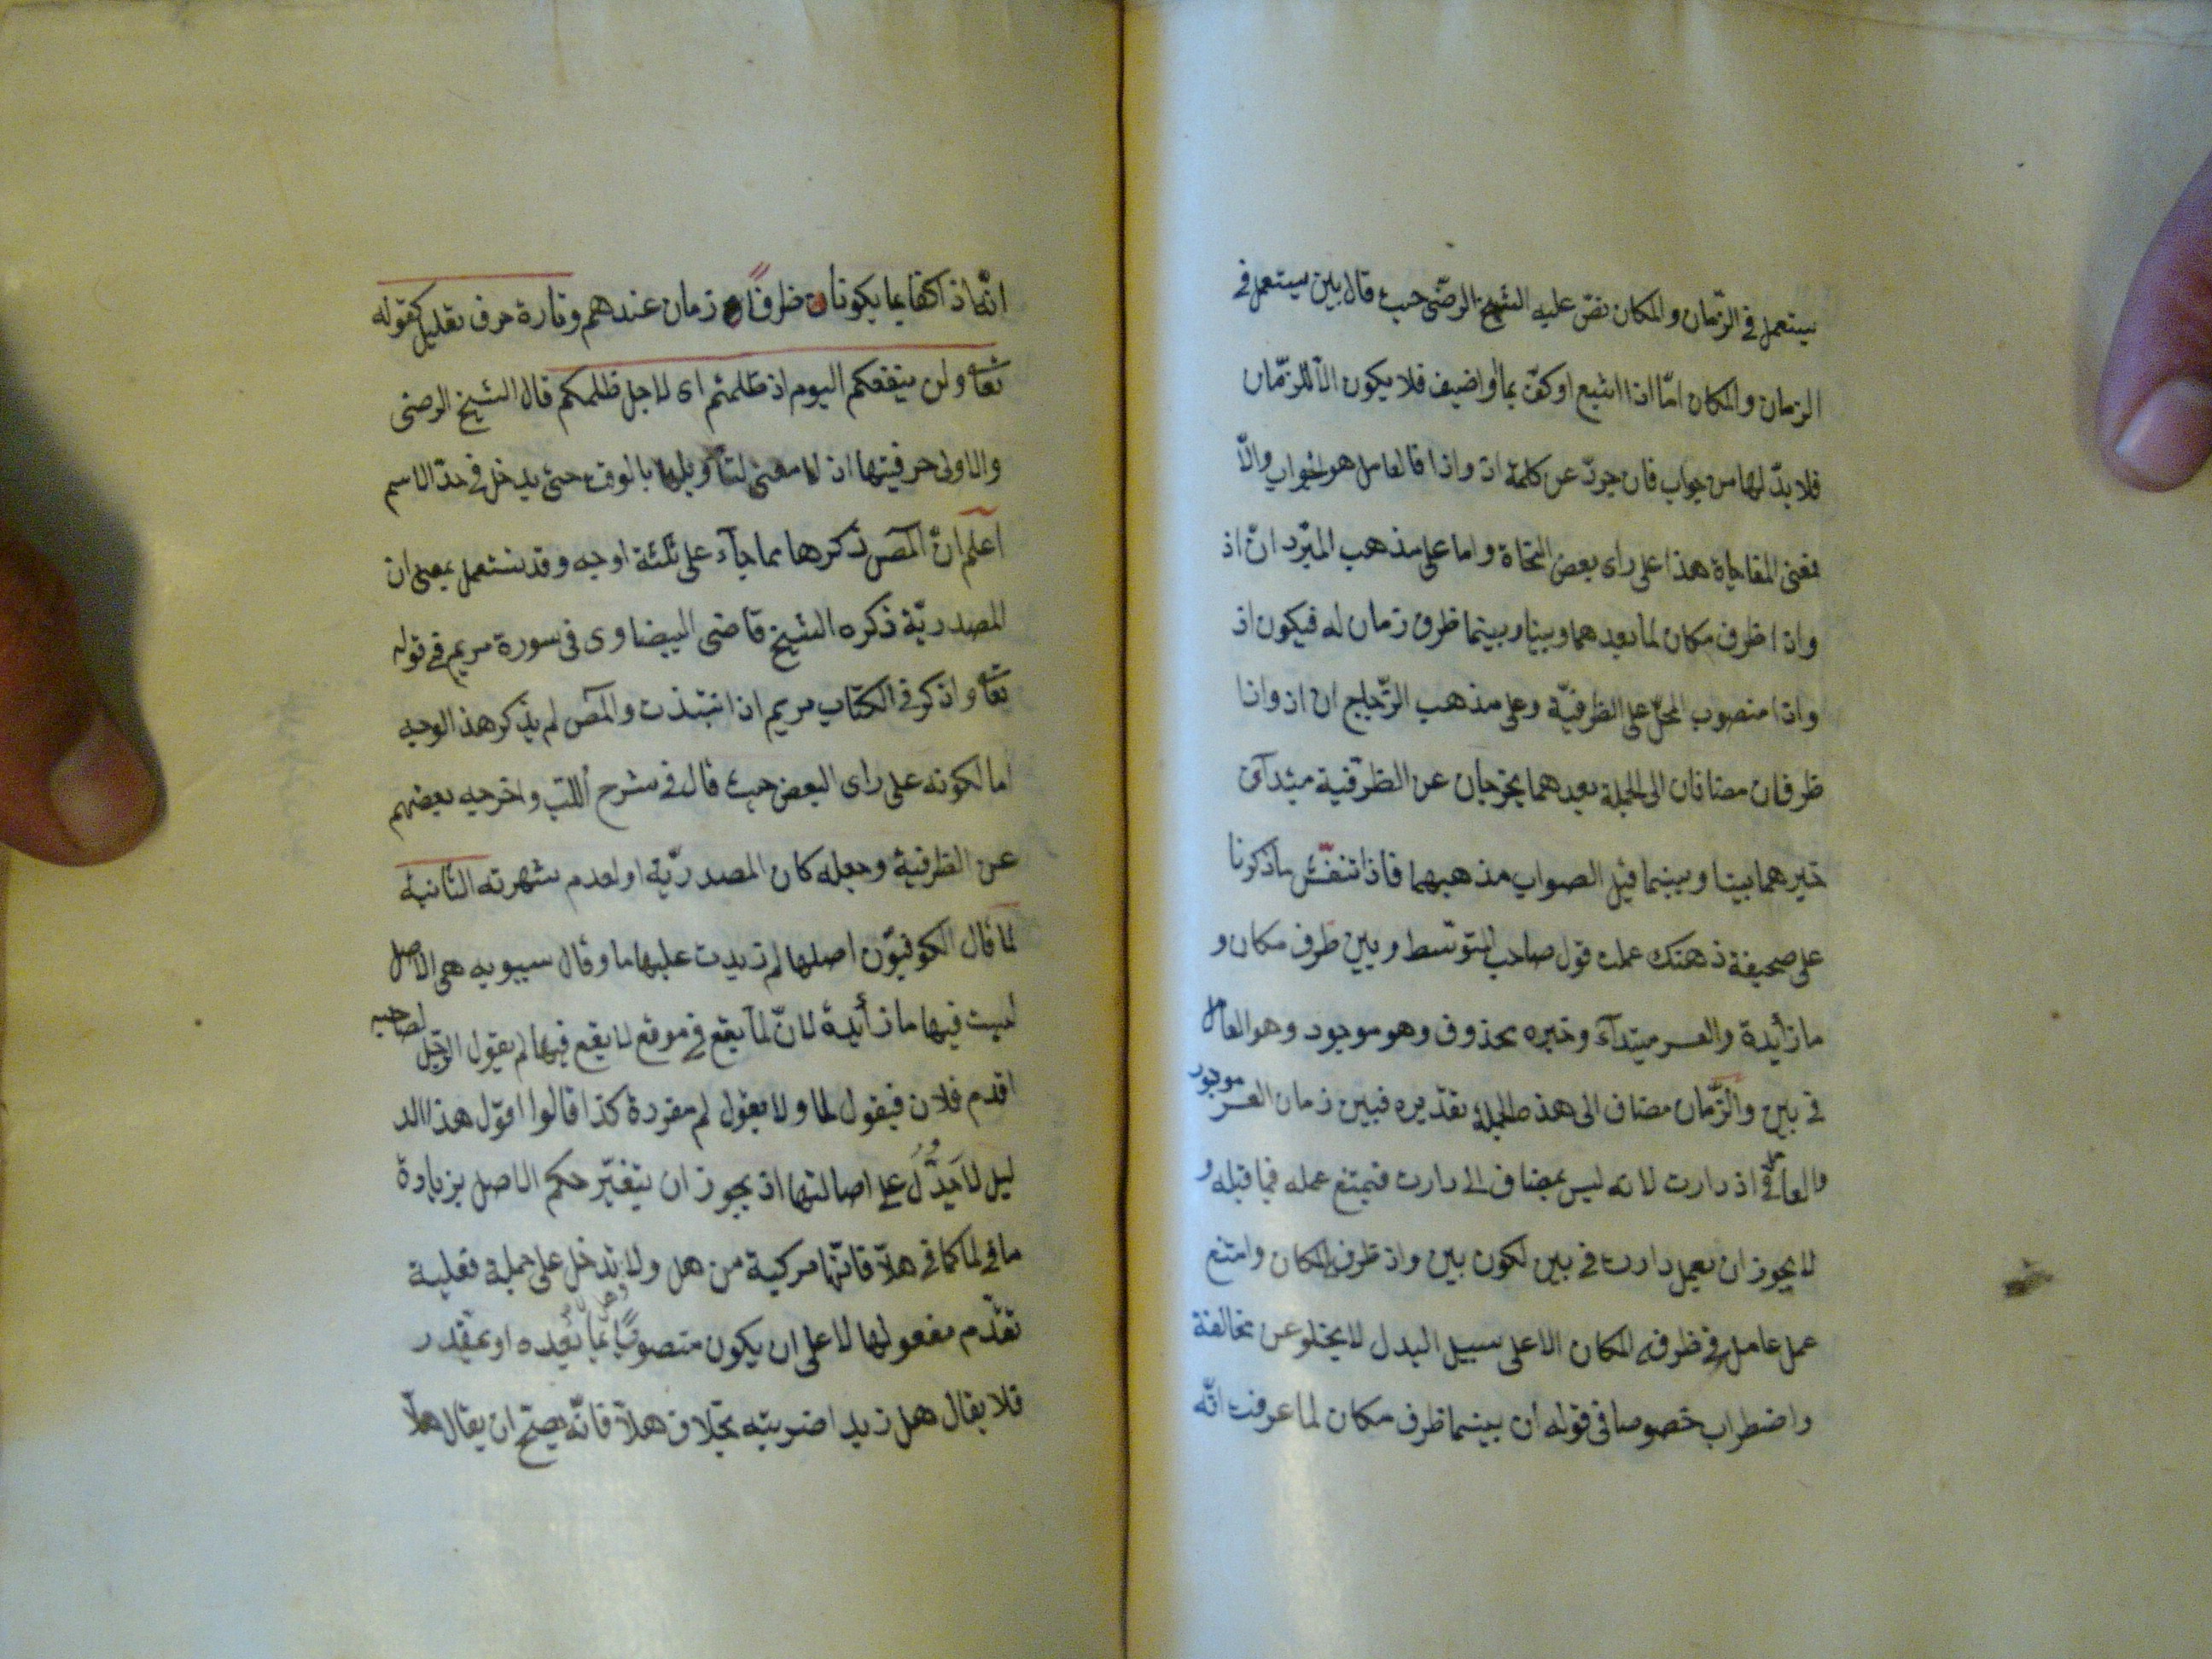 يستعمل في الزّمان والمكان نصّ عليه الشيخ الرضّى حيث قال بين يستعمل في
الزمان والمكان امّا اذا اشبع او كفّ بما واضيف فلا يكون الّا للزمّان
فلا بدّ لها من جواب فان جردّ عن كلمة اذ واذا فالعامل هو الجواب والّا
فمعنى المفاجاة هذا على راى بعض النحاة واما على مذهب المبّرد انّ اذ
واذا ظرف مكان لما بعدهما وبينا وبينما ظرف زمان له فيكون اذ
واذا منصوب المحلّ على الظرفيّة وعلى مذهب الزّجاج ان اذ واذا
ظرفان مضافان الى الجملة بعدهما يخرجان عن الظرفية مبتدآن
خبرهما بينا وبينما قيل الصواب مذهبهما فاذا تنقّش ما ذكرنا
على صحيفة ذهنك علمت قول صاحب المتوّسط وبين ظرف مكان و
ما زأيدة والعسر مبتدآء وخبره محذوف وهو موجود وهو العامل
في بين والزّمان مضاف الى هذه الجملة تقدّيره فبين زمان العسر موجود
والعامل في اذ دارت لانه ليس بمضاف الى دارت فيمتنع عمله فيما قبله و
لا يجوز ان يعمل دارت في بين لكون بين واذ ظرف المكان وامتنع
عمل عامل في ظرفي المكان الا على سبيل البدل لا يخلو عن مخالفة
واضطراب خصوصا في قوله ان بينما ظرف مكان لما عرفت انّه
انّها اذ اكفا بما يكونان ظرفان زمان عندهم وتارة حرف تعليل كقوله
تعا ولن ينفعكم اليوم اذ ظلمتم اى لاجل ظلمكم قال الشيخ الرضى
والاولى حرفيتها اذ لا معنى لتأويلها بالوقت حتى يدخل في حدّ الاسم
اعلم انّ المصّ ذكرها مما جآء على ثلثة اوجه وقد يستعمل بمعنى ان
المصدريّة ذكره الشيخ قاضى البيضاوى في سورة مريم في قوله
تعا واذكر في الكتاب مريم اذ انتبذت والمصّ لم يذكر هذا الوجه
اما لكونه على راى البعض حيث قال في شرح اللب واخرجه بعضهم
عن الظرفية وجعله كان المصدريّة او لعدم شهرته الثانية
لما قال الكوفيّون اصلها لم زيدت عليها ما وقال سيبويه هى الاصل
ليست فيها ما زأيدة لانّ لمّا يقع في موقع لا يقع فيها لم يقول الرّجل لصاحبه
اقدم فلان فيقول لما ولا يقول لم مفردة كذا قالوا اقول هذا الد
ليل لا يدُلّ على اصالتها اذ يجوز ان يتغيّر حكم الاصل بزيادة
ما في لما كما في هلّا فانّها مركبة من هل ولا يدخل على جملة فعلية
تقدّم مفعولها لا على ان يكون منصوبًا بما بعده او بمقدر
فلا يقال هل زيدا ضربته بخلاف هلّا فانّه يصحّ ان يقال هلّا